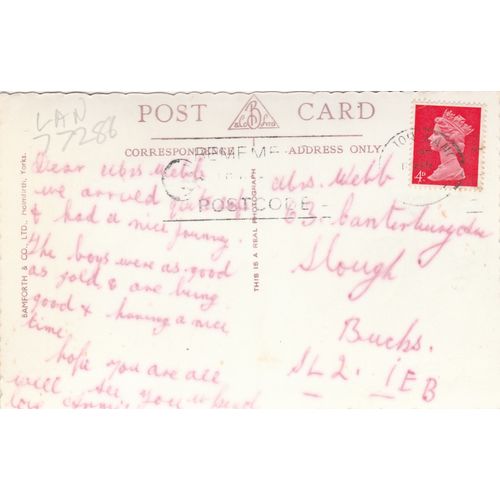 LAN
77286
POST CARD
CORRESPONDENCE ADDRESS ONLY.
REMEMBER
POSTCODE
4d
BAMFORTH & CO., LTD., Holmfirth, Yorks.
THIS IS A REAL PHOTOGRAPH
Dear Mrs Webb
we arrived
& had a nice journey.
The boys were as good
as gold & are being
good & having a nice
time.
hope you are all
well. see you
love
Mrs. Webb
63. Canterbury
Slough
Bucks.
SL2. 1EB